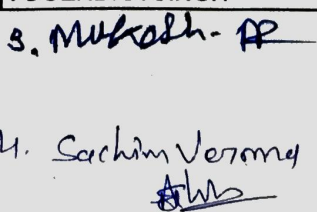 3. Mukesh - AP
4. Sachin Verma